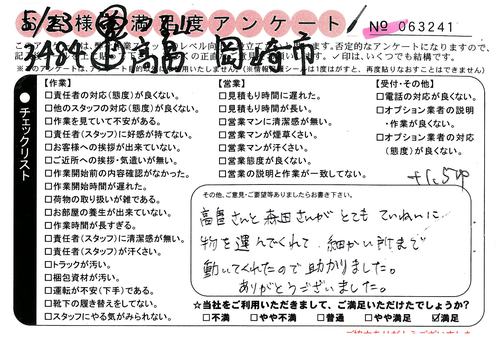 5/23
お客様満足度アンケート
№ 063241
3484 高畠 岡崎市
※このアンケートは
【作業】
□責任者の対応(態度)が良くない。
□他のスタッフの対応(態度)が良くない。
□作業を見ていて不安がある。
□責任者(スタッフ)に好感が持てない。
□お客様への挨拶が出来ていない。
□ご近所への挨拶・気遣いが無い。
□作業開始前の内容確認がなかった。
□作業開始時間が遅れた。
□荷物の取り扱いが雑である。
□お部屋の養生が出来ていない。
□作業時間が長すぎる。
□責任者(スタッフ)に清潔感が無い。
□責任者(スタッフ)が汗くさい。
□トラックが汚い。
□梱包資材が汚い。
□運転が不安(下手)である。
□靴下の履き替えをしてない。
□スタッフにやる気がみられない。
【営業】
□見積もり時間に遅れた。
□見積もり時間が長い。
□営業マンに清潔感が無い。
□営業マンが煙草くさい。
□営業マンが汗くさい。
□営業態度が良くない。
□営業の説明と作業が一致してない。
【受付・その他】
□電話の対応が良くない。
□オプション業者の説明
・作業が良くない。
□オプション業者の対応
(態度)が良くない。
チェックリスト
その他、ご意見・ご要望等ありましたらお書き下さい。
高畠さんと森田さんがとてもていねいに
物を運んでくれて、細かい所まで
動いてくれたので助かりました。
ありがとうございました。
☆当社をご利用いただきまして、ご満足いただけたでしょうか?
□不満 □やや不満 □普通 □やや満足 ☑満足